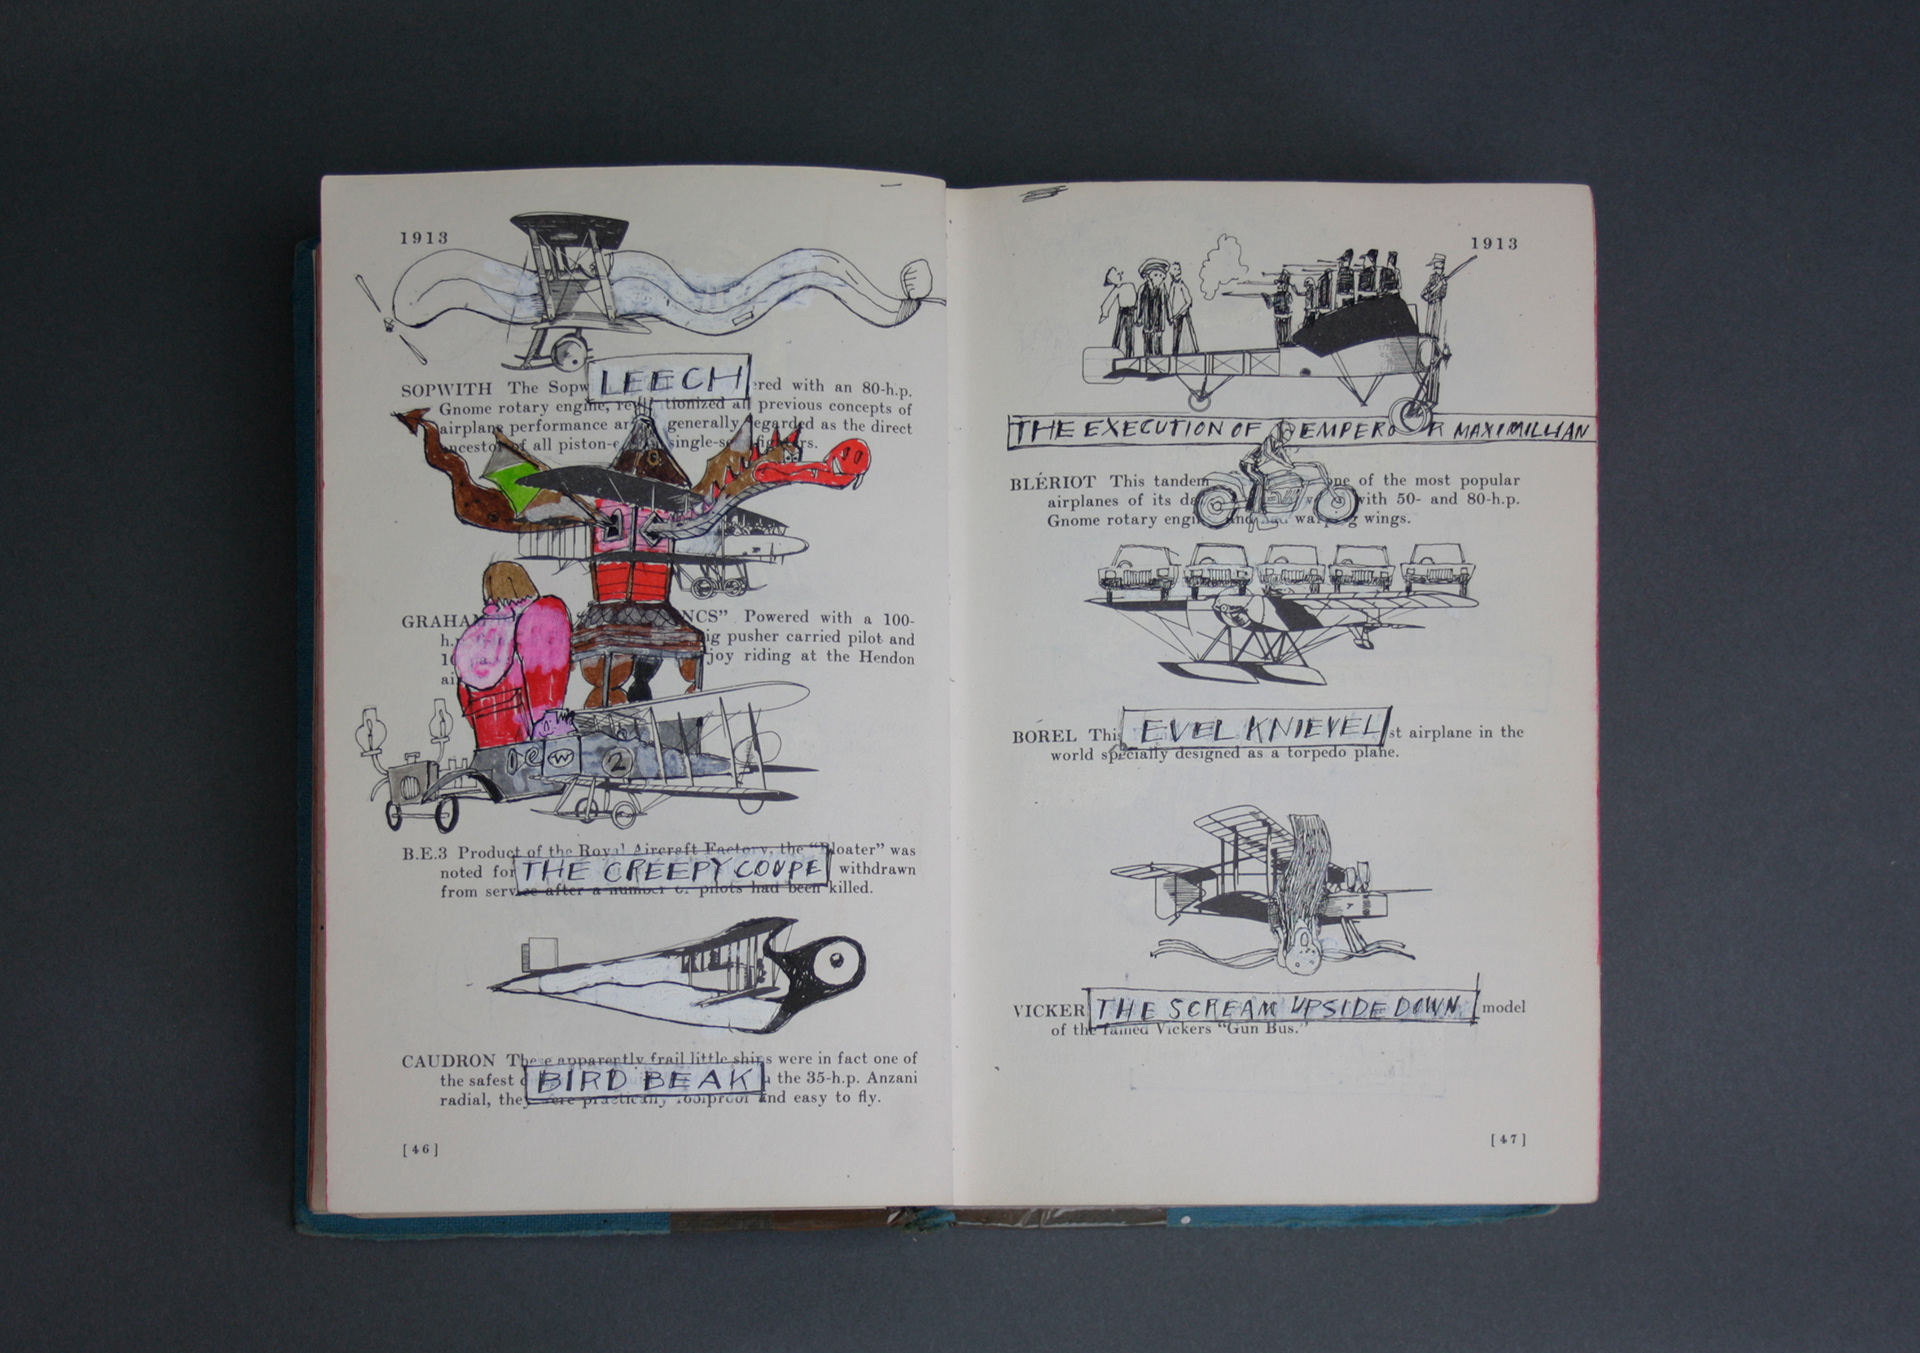 1913
LEECH
SOPWITH The Sopw ered with an 80-h.p.
Gnome rotary engine, tionized all previous concepts of
airplane performance generally regarded as the direct
ancestor of all piston- single-s fighters.
GRAHA NCS" Powered with a 100-
h. ig pusher carried pilot and
joy riding at the Hendon
ai
2
B.E.3 Product of the Royal Aircraft Factory, the "Bloater" was
noted for THE CREEPY COUPE withdrawn
from service after a number of pilots had been killed.
CAUDRON These apparently frail little ships were in fact one of
the safest BIRD BEAK the 35-h.p. Anzani
radial, they were practically foolproof and easy to fly.
[46]
1913
THE EXECUTION OF EMPEROR MAXIMILLIAN
BLÉRIOT This tandem one of the most popular
airplanes of its da with 50- and 80-h.p.
Gnome rotary engi and had warping wings.
BOREL This EVEL KNIEVEL st airplane in the
world specially designed as a torpedo plane.
VICKER THE SCREAM UPSIDE DOWN model
of the famed Vickers "Gun Bus."
[47]